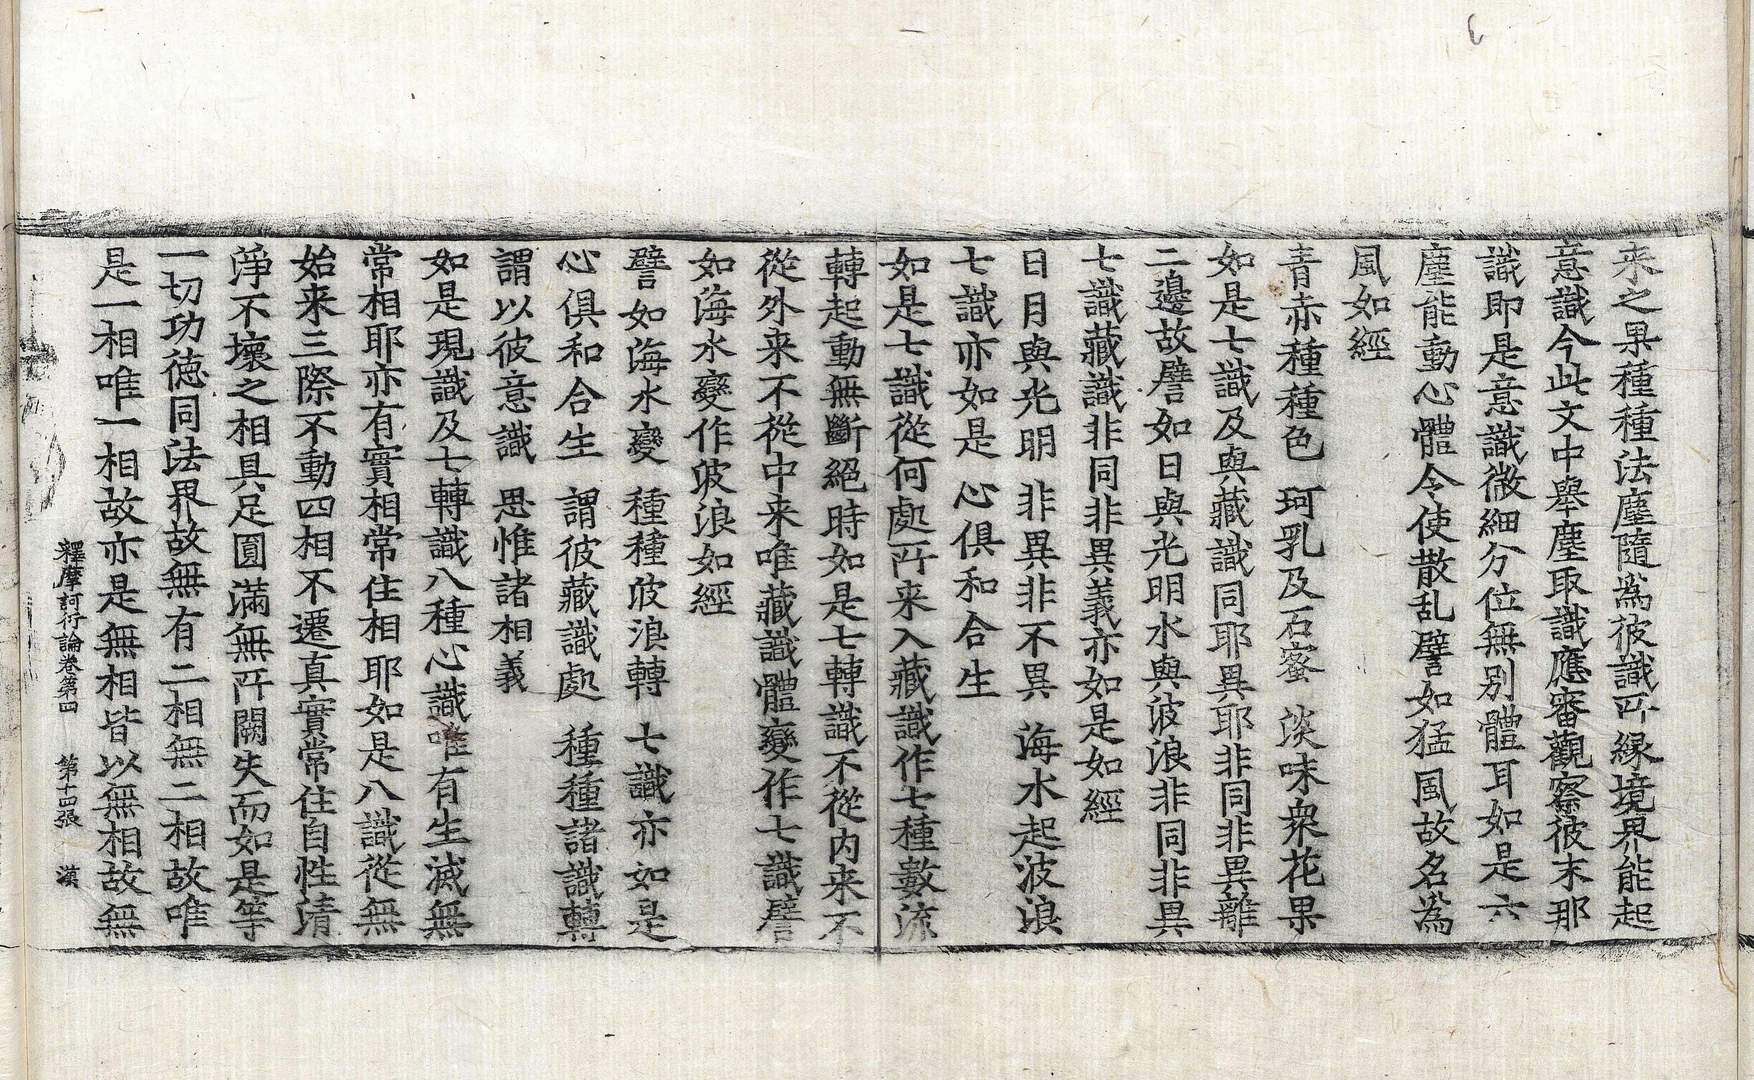 来之果種種法塵隨為彼識所縁境界能起
意識今此文中舉塵取識應審觀察彼末那
識即是意識微細分位無別體耳如是六
塵能動心體令使散乱譬如猛風故名為
風如經
青赤種種色 珂乳及石蜜 淡味衆花果
如是七識及與藏識同耶異耶非同非異離
二邊故譬如日與光明水與波浪非同非異
七識藏識非同非異義亦如是如經
日月與光明 非異非不異 海水起波浪
七識亦如是 心俱和合生
如是七識從何處所来入藏識作七種數流
轉起動無斷絕時如是七轉識不從内来不
從外来不從中来唯藏識體變作七識譬
如海水變作波浪如經
譬如海水變 種種波浪轉 七識亦如是
心俱和合生 謂彼藏識處 種種諸識轉
謂以彼意識 思惟諸相義
如是現識及七轉識八種心識唯有生滅無
常相耶亦有實相常住相耶如是八識從無
始来三際不動四相不遷真實常住自性清
淨不壞之相具足圓滿無所闕失而如是等
一切功徳同法界故無有二相無二相故唯
是一相唯一相故亦是無相皆以無相故無
釋摩訶衍論卷第四 第十四張 漢